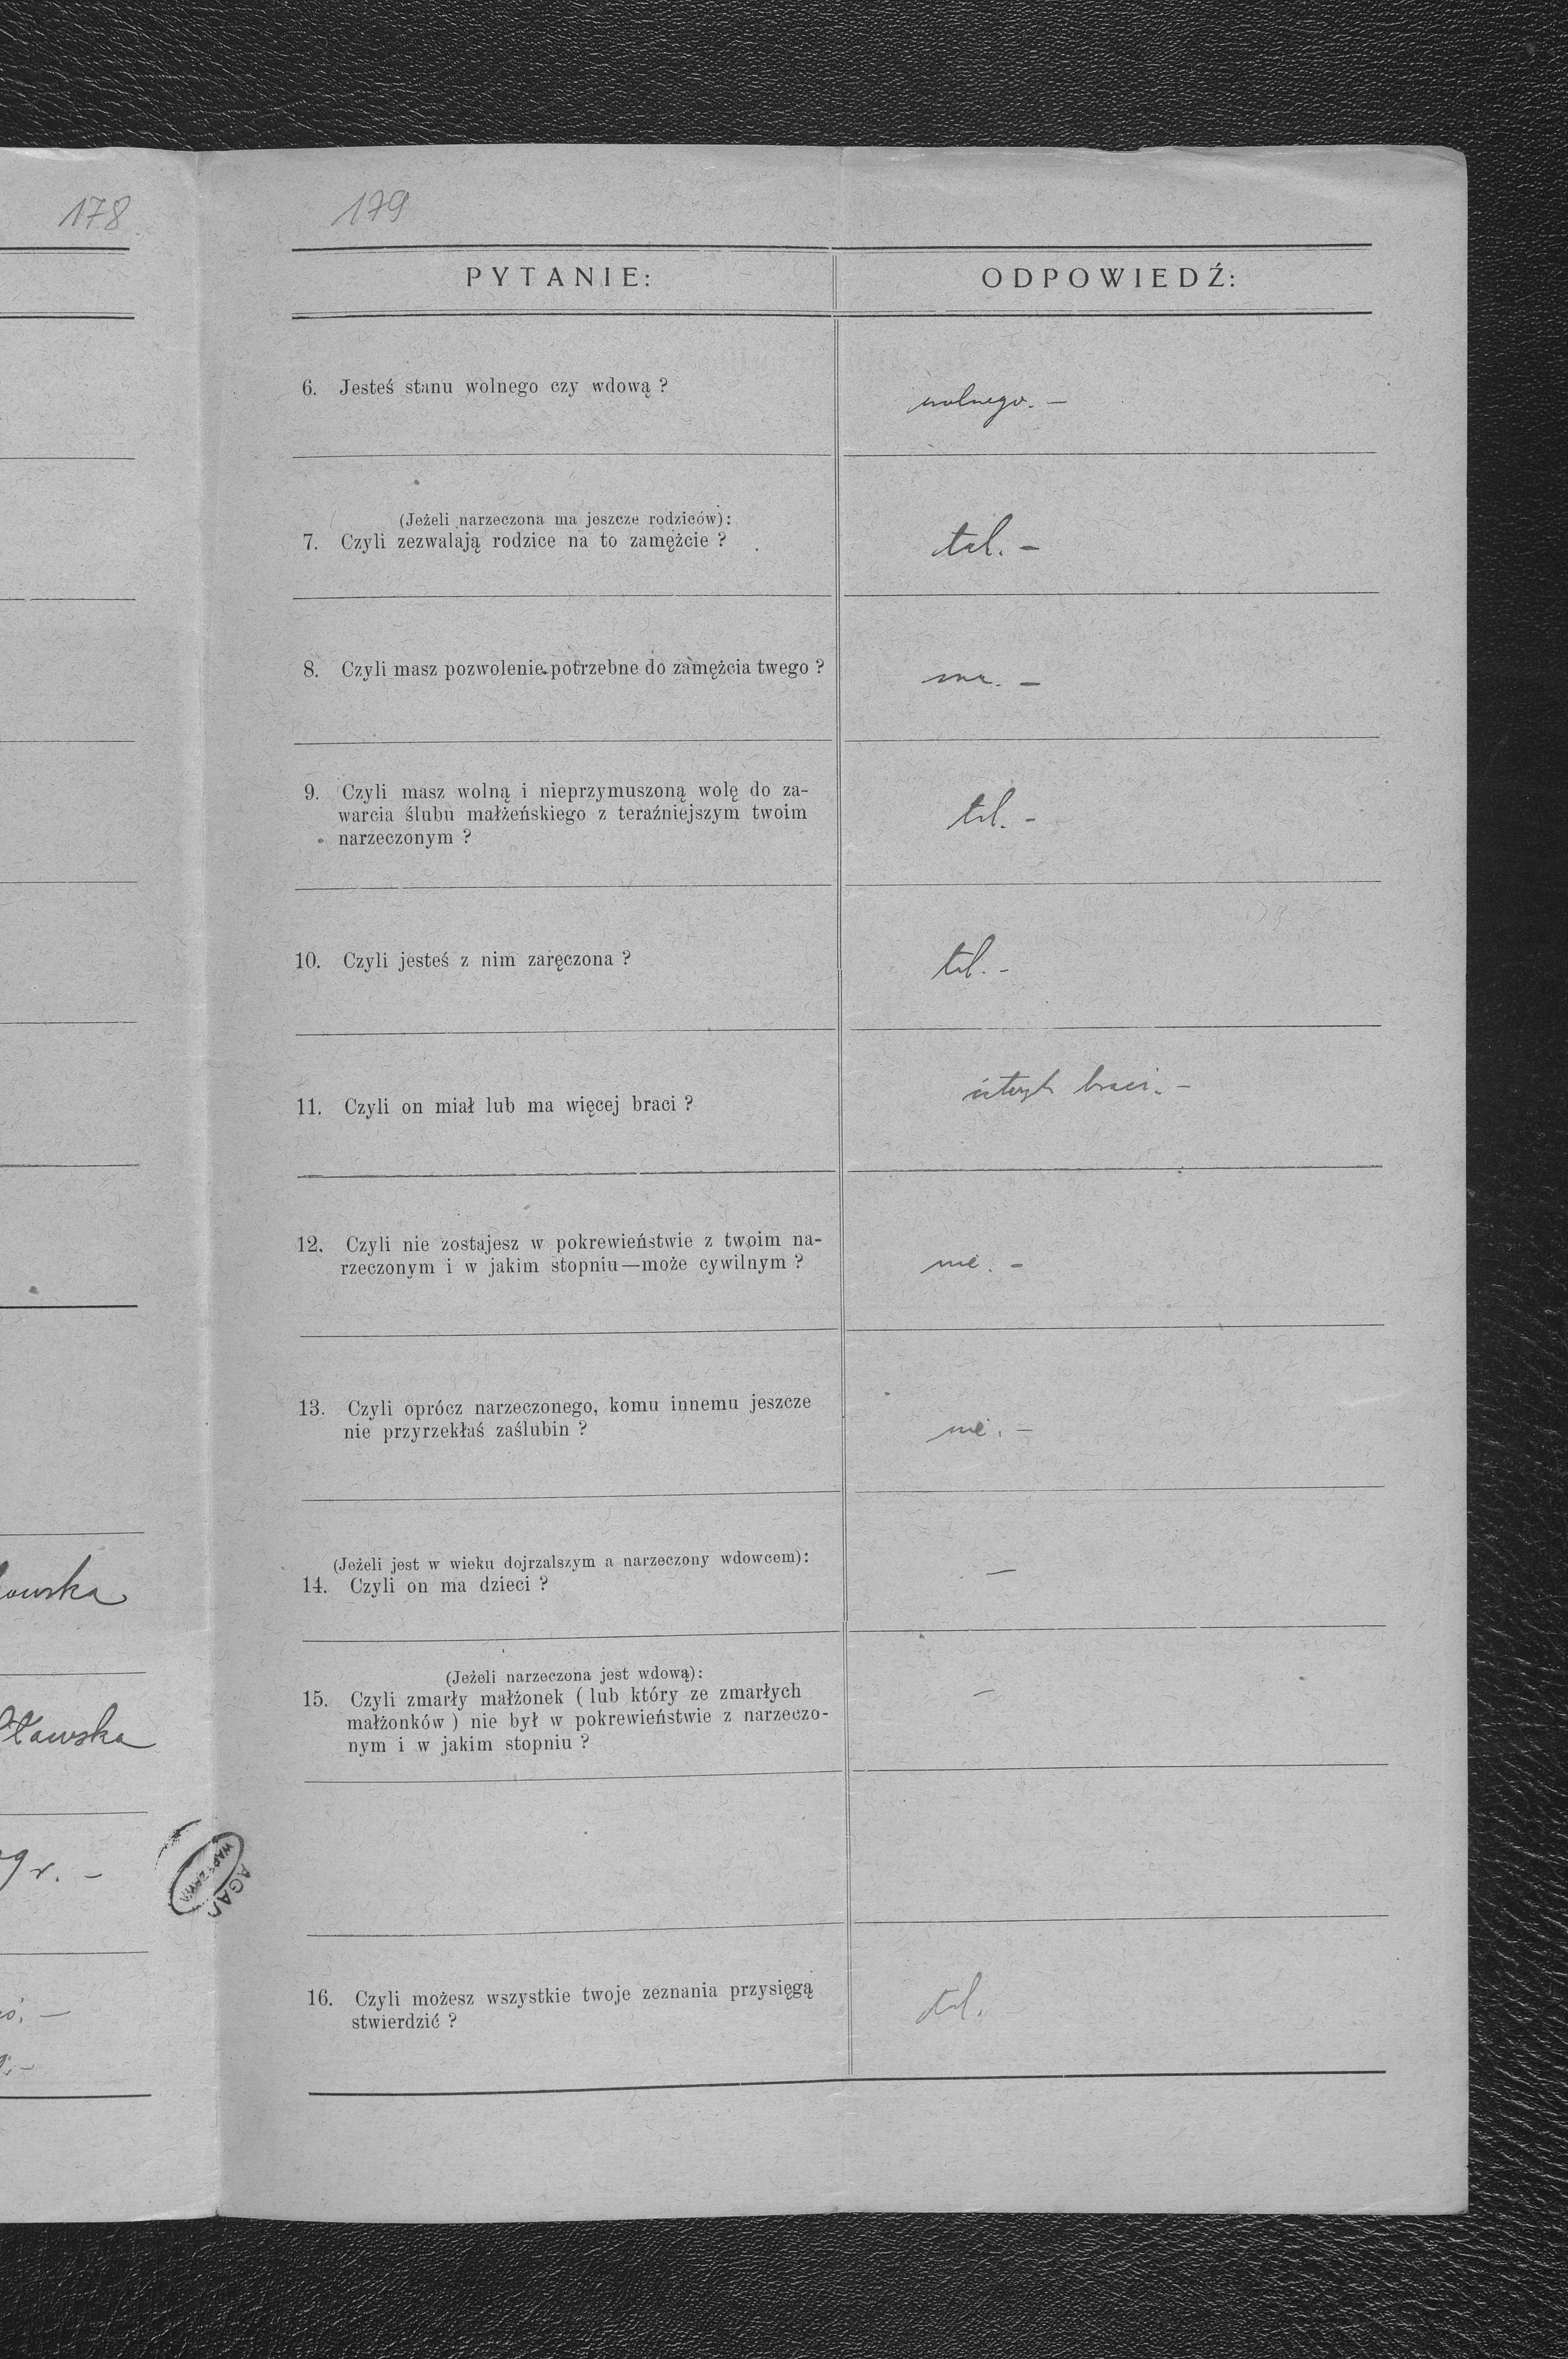 178
179
PYTANIE: ODPOWIEDŹ:
6. Jesteś stanu wolnego czy wdową ?
wolnego. –
(Jeżeli narzeczona ma jeszcze rodziców):
7. Czyli zezwalają rodzice na to zamężcie ?
tak. –
8. Czyli masz pozwolenie potrzebne do zamężcia twego ?
ma. –
9. Czyli masz wolną i nieprzymuszoną wolę do za-
warcia ślubu małżeńskiego z teraźniejszym twoim
narzeczonym ?
tak. –
10. Czyli jesteś z nim zaręczona ?
tak. –
11. Czyli on miał lub ma więcej braci ?
braci. –
12. Czyli nie zostajesz w pokrewieństwie z twoim na-
rzeczonym i w jakim stopniu—może cywilnym ?
nie. –
13. Czyli oprócz narzeczonego, komu innemu jeszcze
nie przyrzekłaś zaślubin ?
nie. –
(Jeżeli jest w wieku dojrzalszym a narzeczony wdowcem):
14. Czyli on ma dzieci ?
–
owska
(Jeżeli narzeczona jest wdową):
15. Czyli zmarły małżonek ( lub który ze zmarłych
małżonków ) nie był w pokrewieństwie z narzeczo-
nym i w jakim stopniu ?
–
ławska
9 r. –
AGAD
WARSZAWA
16. Czyli możesz wszystkie twoje zeznania przysięgą
stwierdzić ?
tak.